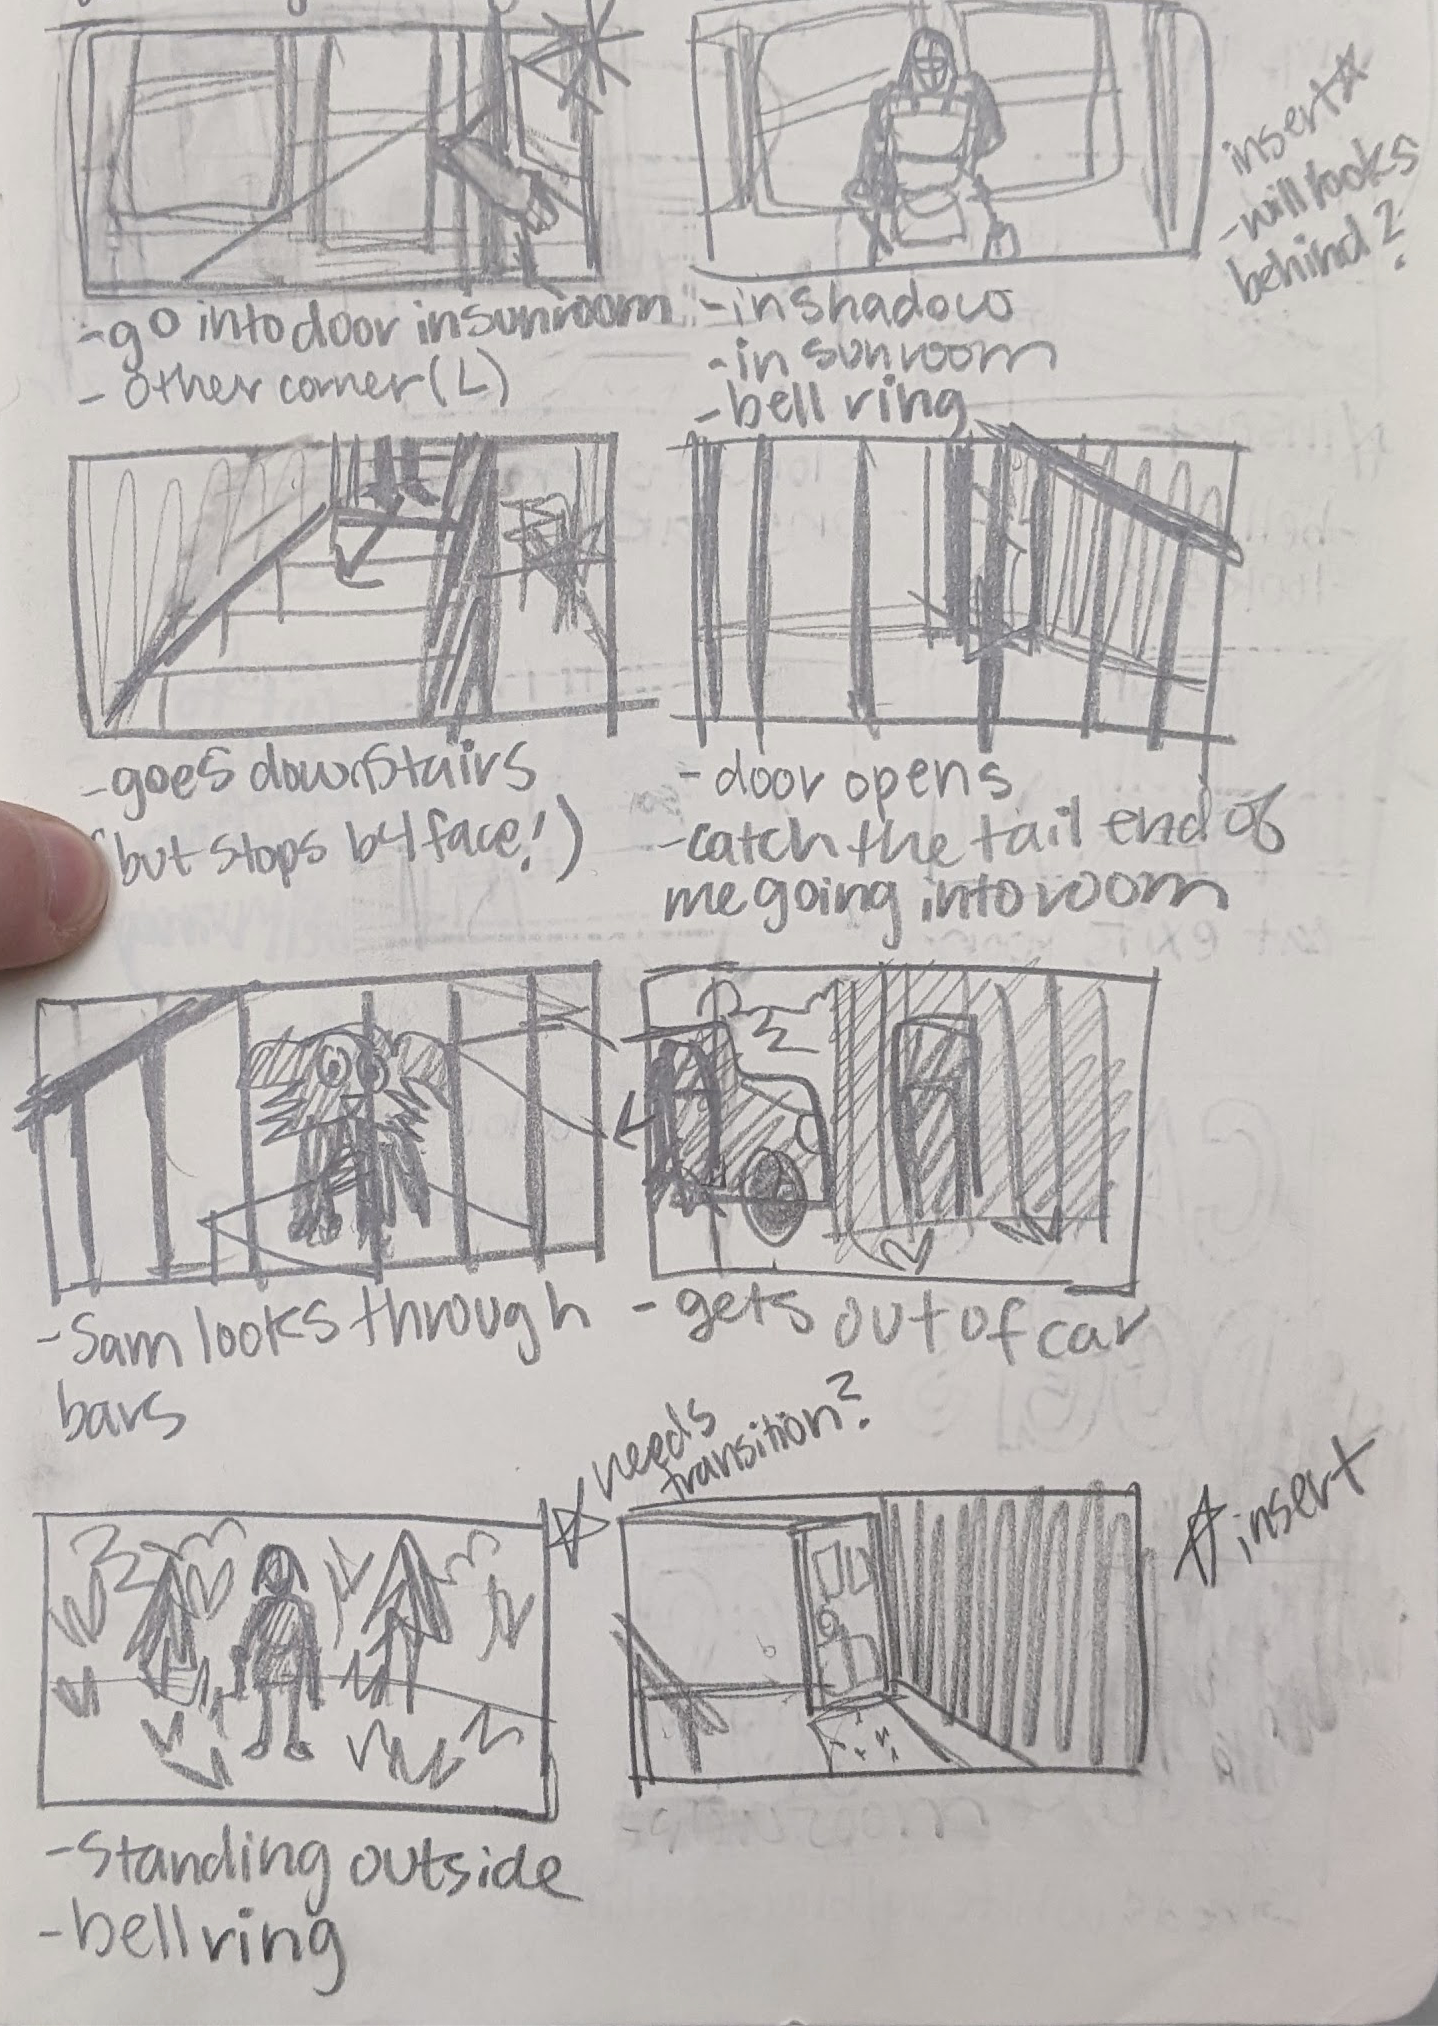 -go into door in sunroom
- other corner (L)
-in shadow
-in sunroom
-bell ring
insert☆
-will looks
behind?
-goes downstairs
(but stops by face!)
-door opens
-catch the tail end of
me going into room
-Sam looks through
bars
-gets out of car
☆ needs
transition?
-standing outside
-bell ring
☆insert